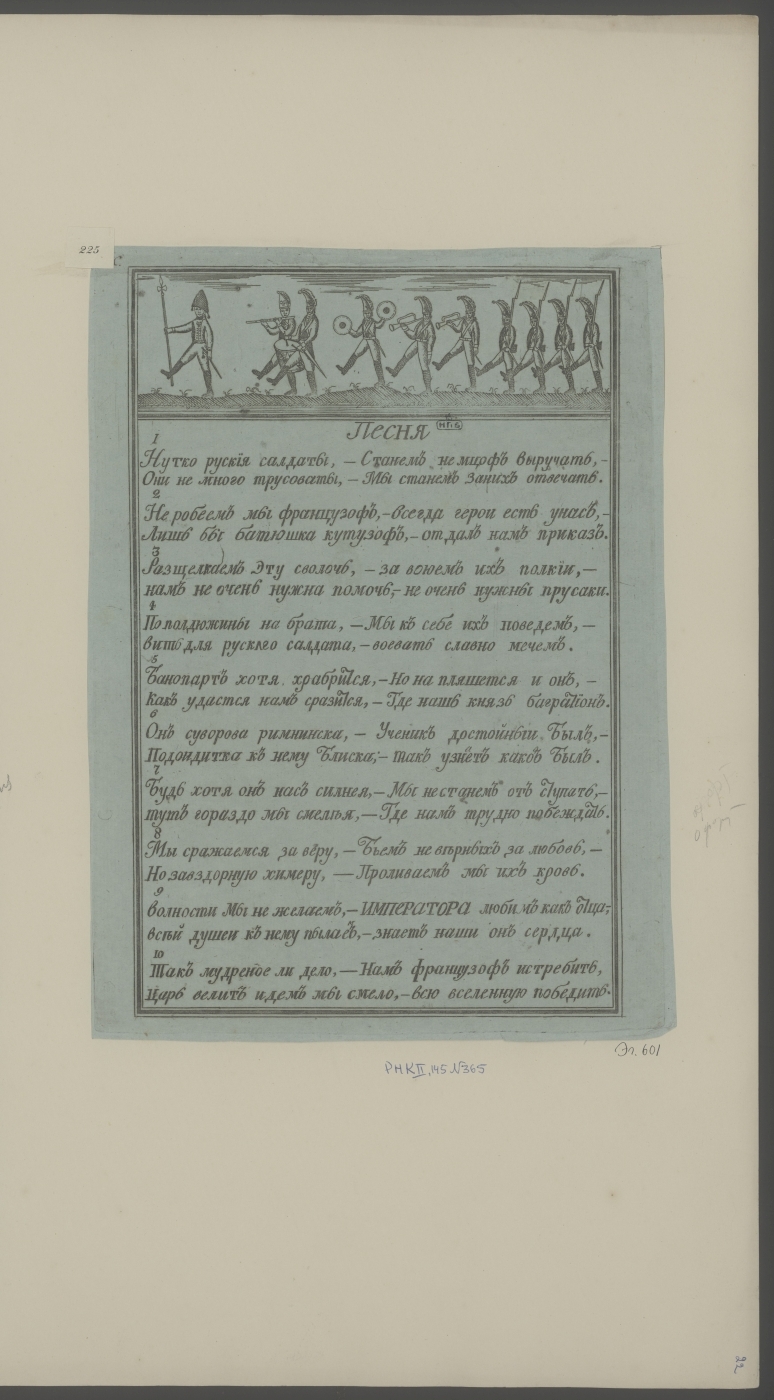 225
Песня
1
Нутко рускїя салдаты, — Станемъ немцофъ выручать,-
Они не много трусоваты, — Мы станемъ Занихъ отвечать.
2
Не робеемъ мы французофъ,-всегда герои есть унасъ,-
Лишь бы батюшка кутузофъ,-отдалъ намъ приказъ.
3
Разщелкаемъ Эту сволочь, — за воюемъ ихъ полкїи,—
намъ не очень нужна помочь,- не очень нужны прусаки.
4
Пополдюжины на брата, — Мы къ себе ихъ поведемъ, —
вить для рускаго салдата,-воевать славно мечемъ.
5
Банопартъ хотя храбрится,-Но на пляшется и онъ, —
Какъ удастся намъ сразится,- Где нашь князь багратионъ.
6
Онъ суворова римнинска, — Ученикъ достойный Былъ,-
Подоидитка къ нему Блиска,- такъ узнетъ каковъ Былъ.
7
Будь хотя онъ насъ силнея,-Мы нестанемъ отъ ступать,-
тутъ гораздо мы смелѣя,—Где намъ трудно побеждать.
8
Мы сражаемся за веру, — Бьемъ не вѣрныхъ за любовь, —
Но завздорную химеру, — Проливаемъ мы ихъ кровь.
9
волности Мы не желаемъ,—ИМПЕРАТОРА любимъ какъ отца,-
всѣй душеи къ нему пылаетъ,-знаетъ наши онъ сердца.
10
Такъ мудреное ли дело, — Намъ французофъ истребить,
Царь велитъ идемъ мы смело,-всю вселенную победить.
Эл. 601
РНК II, 145 №365
22